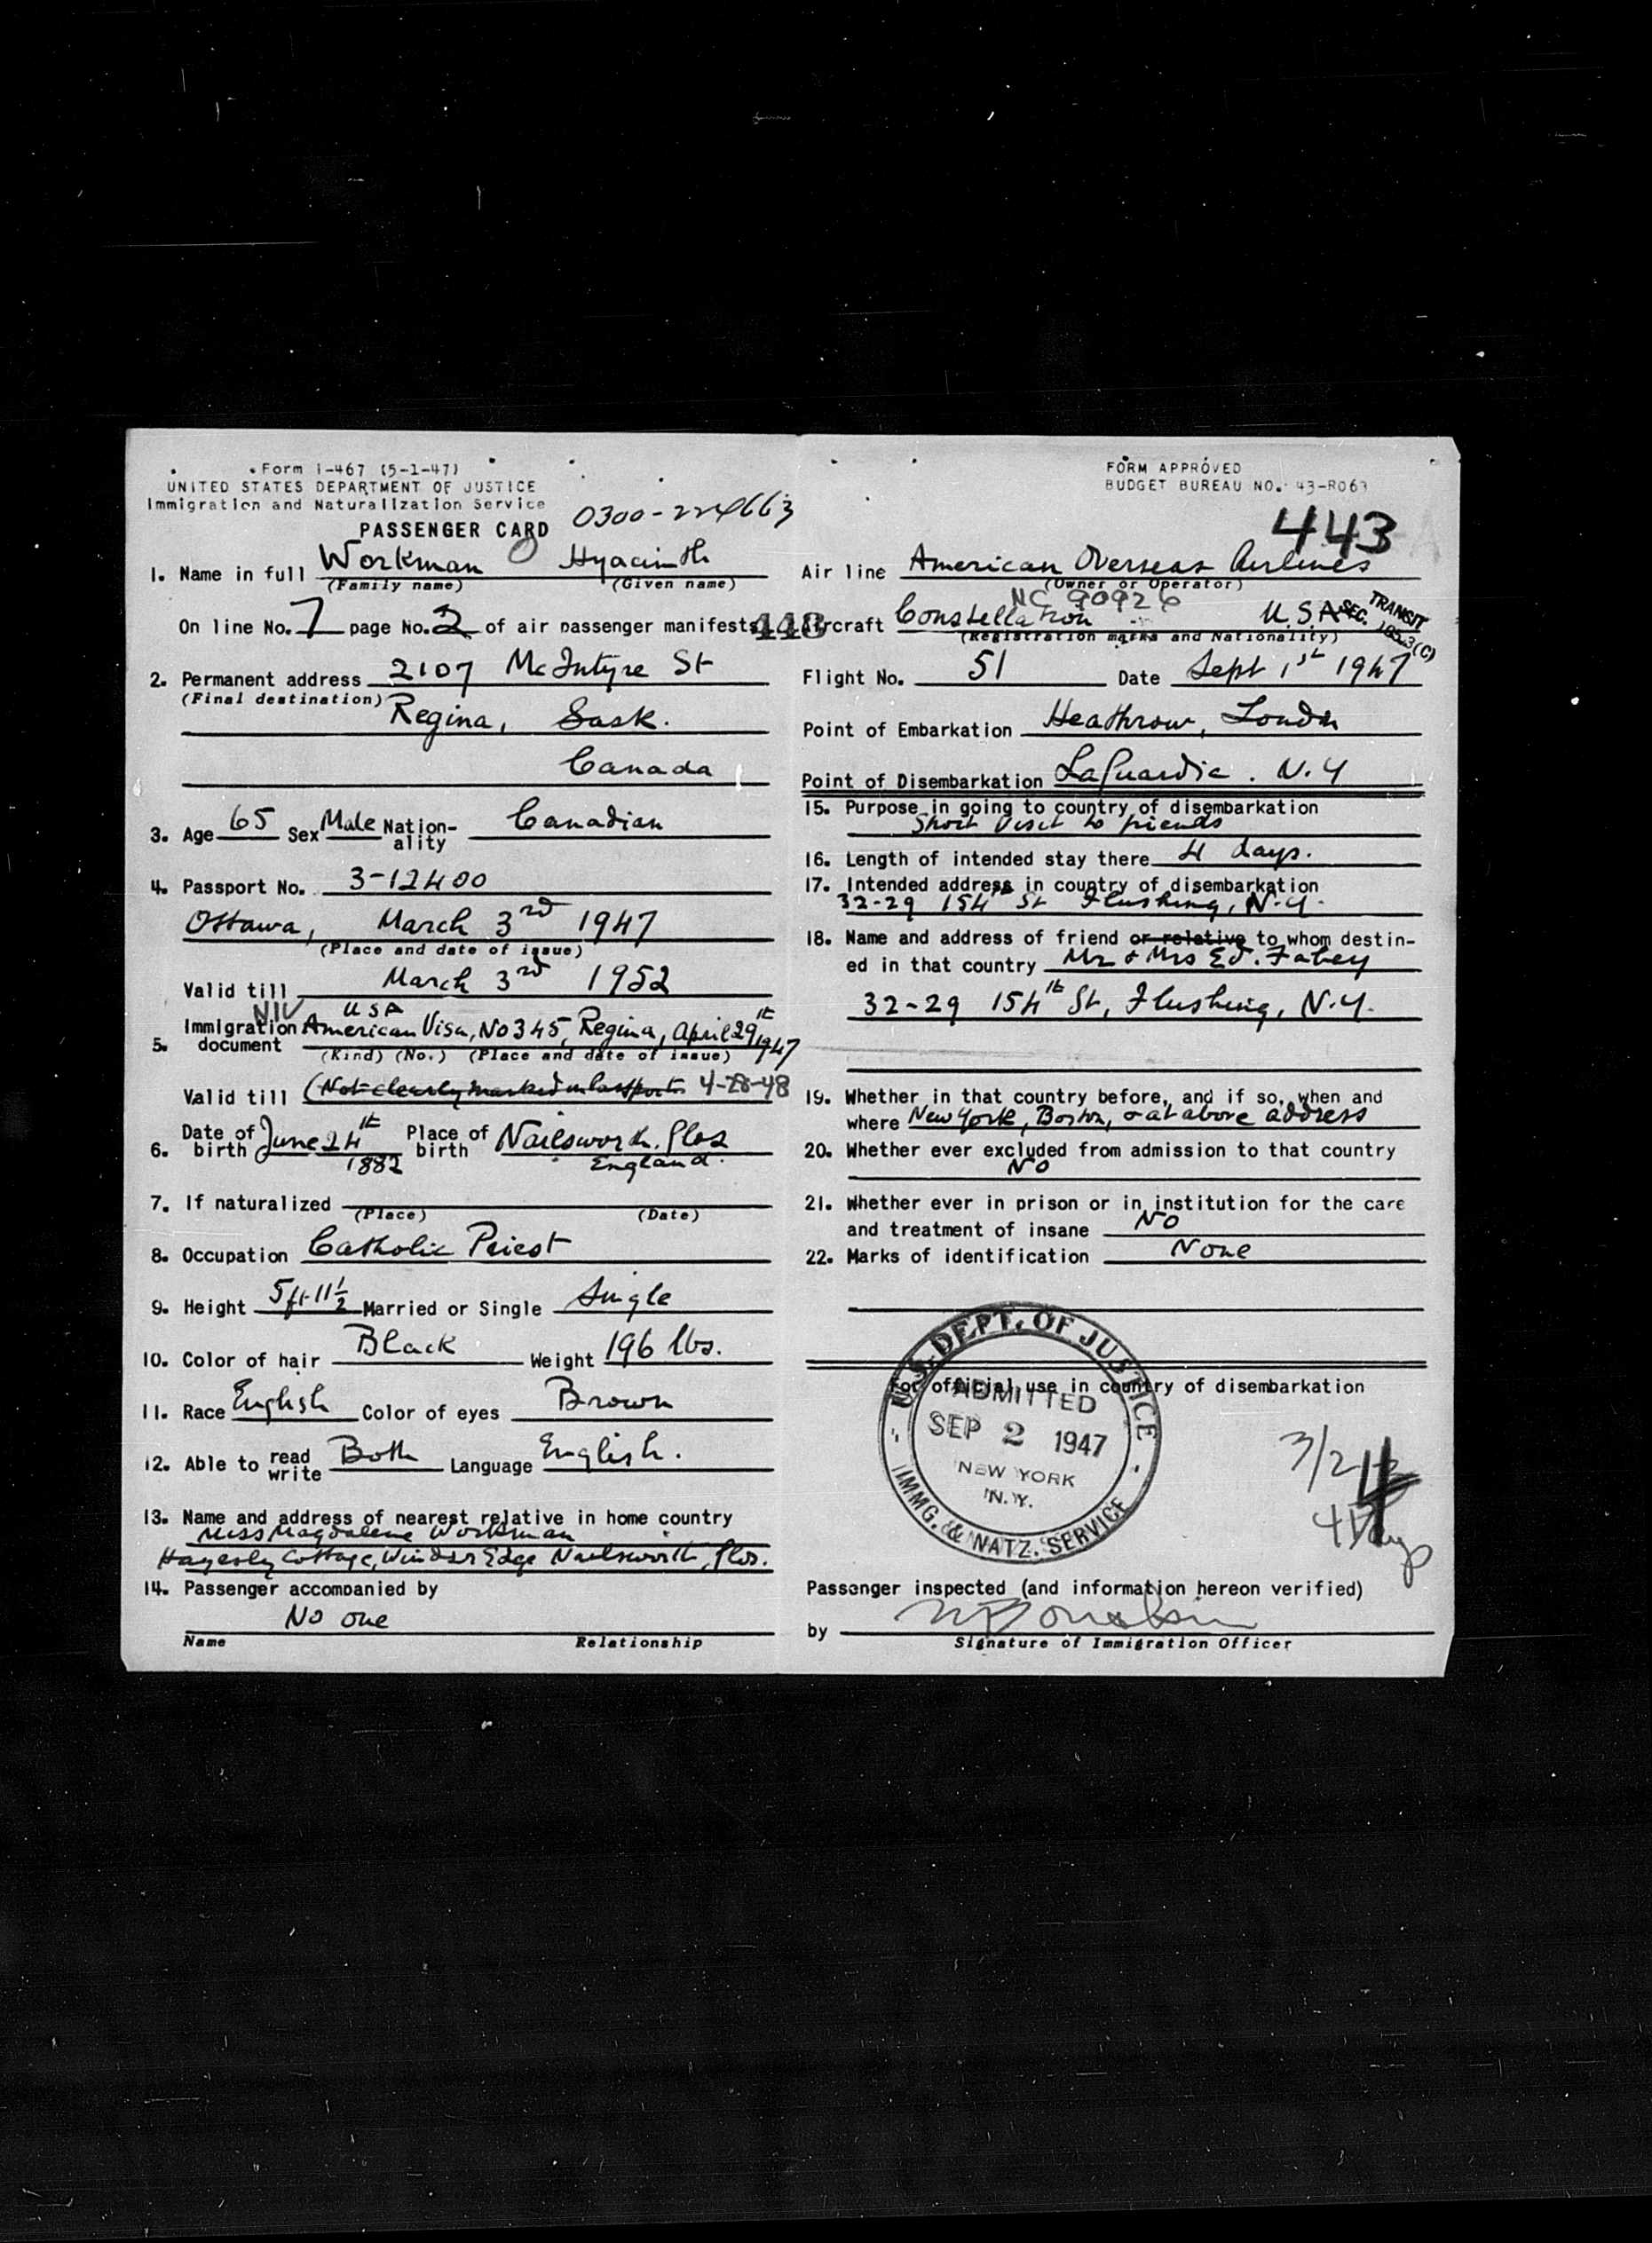 Form I-467 (5-1-47)
UNITED STATES DEPARTMENT OF JUSTICE
Immigration and Naturalization Service
PASSENGER CARD
0300-224663
1. Name in full Workman Hyacinth
(Family name) (Given name)
On line No. 7 page No. 2 of air passenger manifest 443
2. Permanent address 2107 McIntyre St
(Final destination) Regina, Sask.
Canada
3. Age 65 Sex Male Nation-ality Canadian
4. Passport No. 3-12400
Ottawa, March 3rd 1947
(Place and date of issue)
Valid till March 3rd 1952
NIV USA
5. Immigration document American Visa, No 345, Regina, April 29th 1947
(Kind) (No.) (Place and date of issue)
Valid till (Not clearly marked in Passport 4-28-48
6. Date of birth June 24th 1882 Place of birth Nailsworth. Glos England.
7. If naturalized
(Place) (Date)
8. Occupation Catholic Priest
9. Height 5ft-11½ Married or Single Single
10. Color of hair Black Weight 196 lbs.
11. Race English Color of eyes Brown
12. Able to read write Both Language English.
13. Name and address of nearest relative in home country
Miss Magdalene Workman
Cottage, Windsor Edge Nailsworth, Glos.
14. Passenger accompanied by
No one
Name Relationship
FORM APPROVED
BUDGET BUREAU NO. 43-R063
443
Air line American Overseas Airlines
(Owner or Operator)
NC 90926
Aircraft Constellation U.S.A
(Registration marks and Nationality)
TRANSIT
SEC.
Flight No. 51 Date Sept 1st 1947
Point of Embarkation Heathrow, London
Point of Disembarkation LaGuardia. N.Y
15. Purpose in going to country of disembarkation
Short visit to friends
16. Length of intended stay there 4 days.
17. Intended address in country of disembarkation
32-29 154th St Flushing, N.Y.
18. Name and address of friend or relative to whom destin-
ed in that country Mr & Mrs Ed. Fahey
32-29 154th St, Flushing, N.Y.
19. Whether in that country before, and if so, when and
where New York, Boston, & at above address
20. Whether ever excluded from admission to that country
No
21. Whether ever in prison or in institution for the care
and treatment of insane No
22. Marks of identification None
For official use in country of disembarkation
U.S. DEPT. OF JUSTICE
ADMITTED
SEP 2 1947
NEW YORK
N.Y.
IMMG. & NATZ. SERVICE
Passenger inspected (and information hereon verified)
by
Signature of Immigration Officer